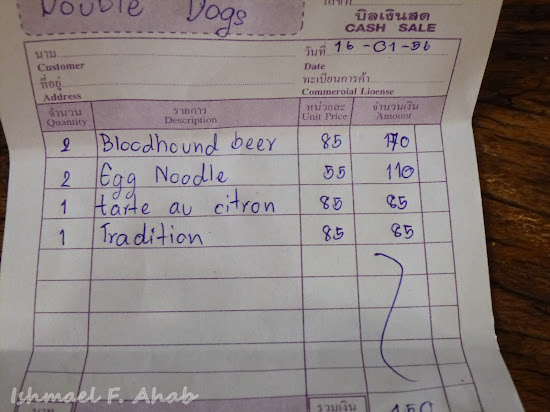 Double Dogs
เลขที่
บิลเงินสด
CASH SALE
นาม
Customer
วันที่ 16-01-56
Date
ที่อยู่
Address
ทะเบียนการค้า
Commercial License
จำนวน Quantity รายการ Description หน่วยละ Unit Price จำนวนเงิน Amount
2 Bloodhound beer 85 170
2 Egg Noodle 55 110
1 tarte au citron 85 85
1 Tradition 85 85
บาท รวมเงิน 450
Ishmael F. Ahab